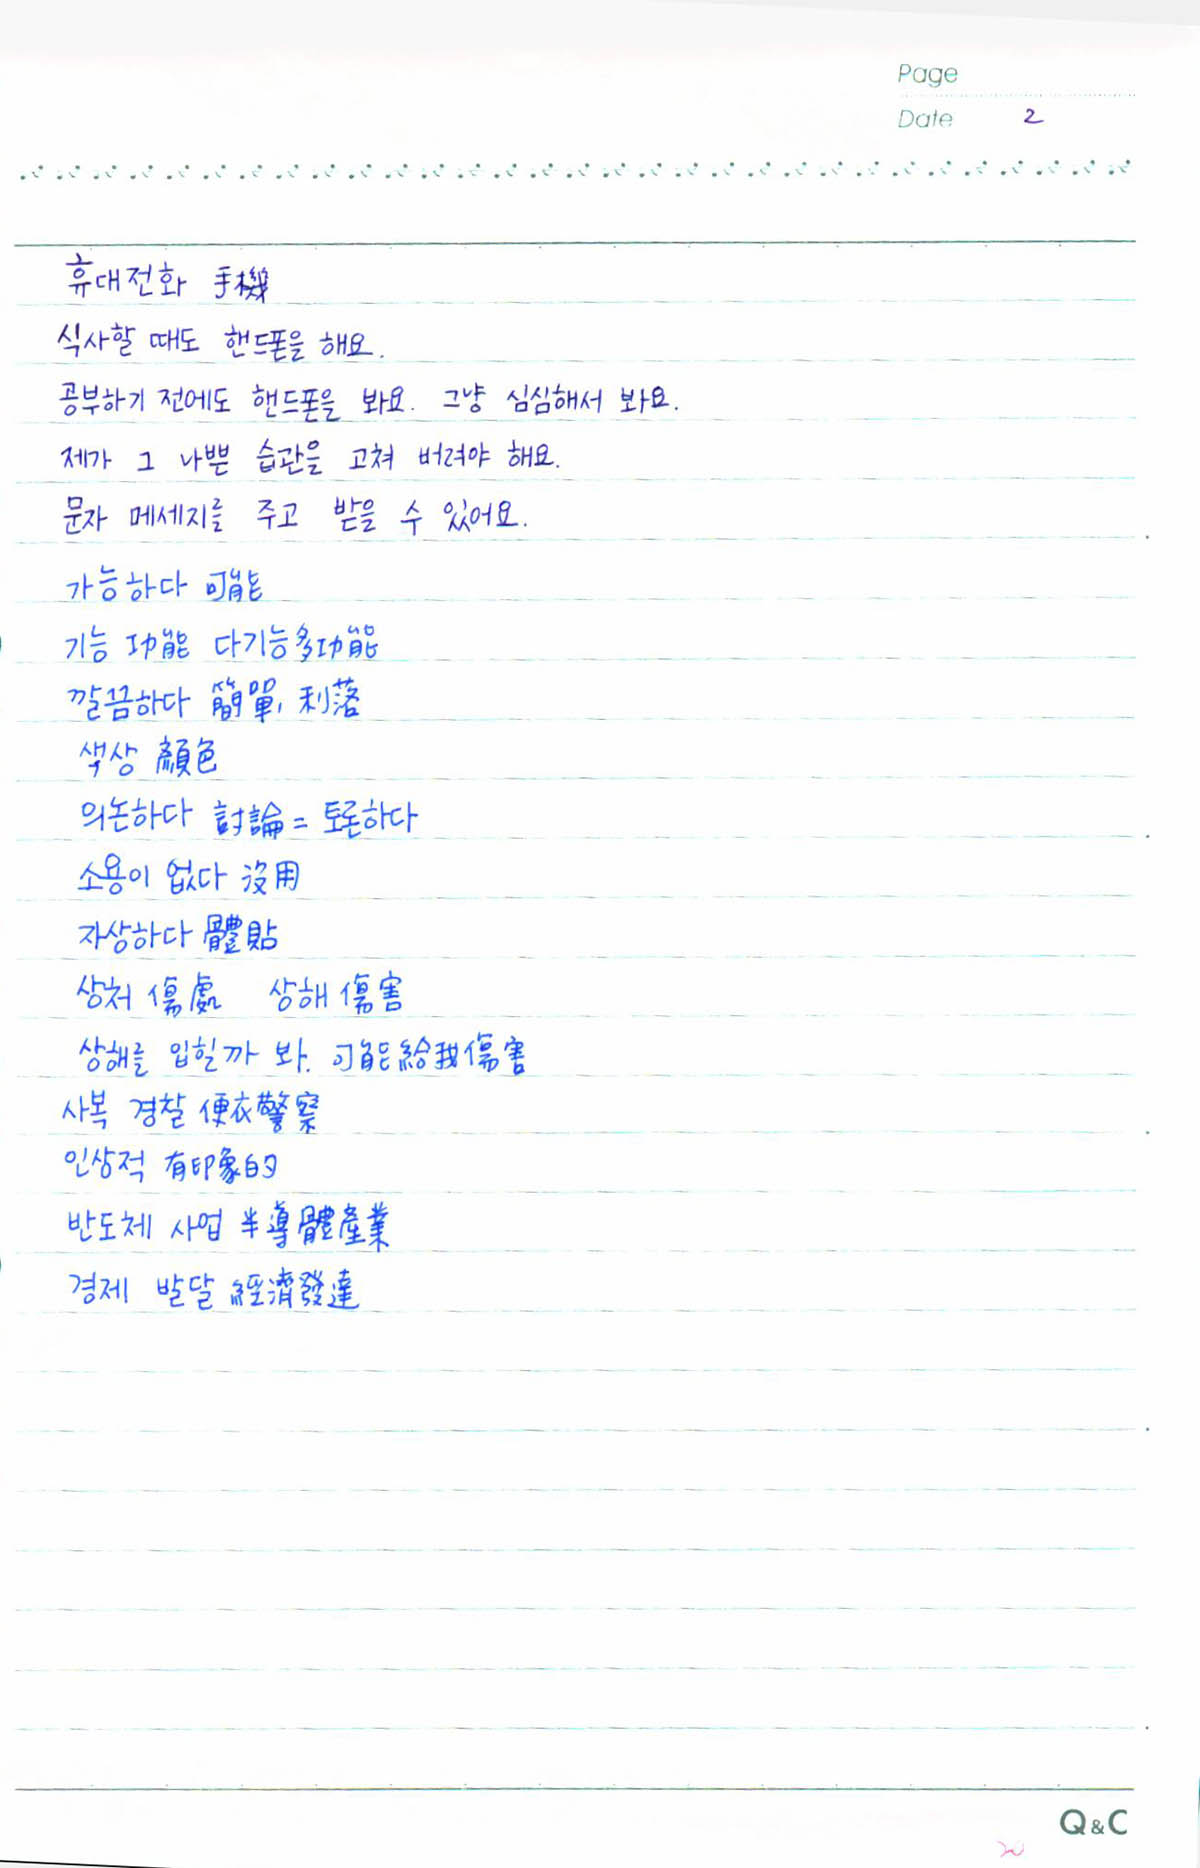 Page
Date 2
휴대전화 手機
식사할 때도 핸드폰을 해요.
공부하기 전에도 핸드폰을 봐요. 그냥 심심해서 봐요.
제가 그 나쁜 습관을 고쳐 버려야 해요.
문자 메세지를 주고 받을 수 있어요.
가능하다 可能
기능 功能 다기능多功能
깔끔하다 簡單, 利落
색상 顏色
의논하다 討論 = 토론하다
소용이 없다 沒用
자상하다 體貼
상처 傷處 상해 傷害
상해를 입힐까 봐. 可能給我傷害
사복 경찰 便衣警察
인상적 有印象的
반도체 사업 半導體產業
경제 발달 經濟發達
Q&C